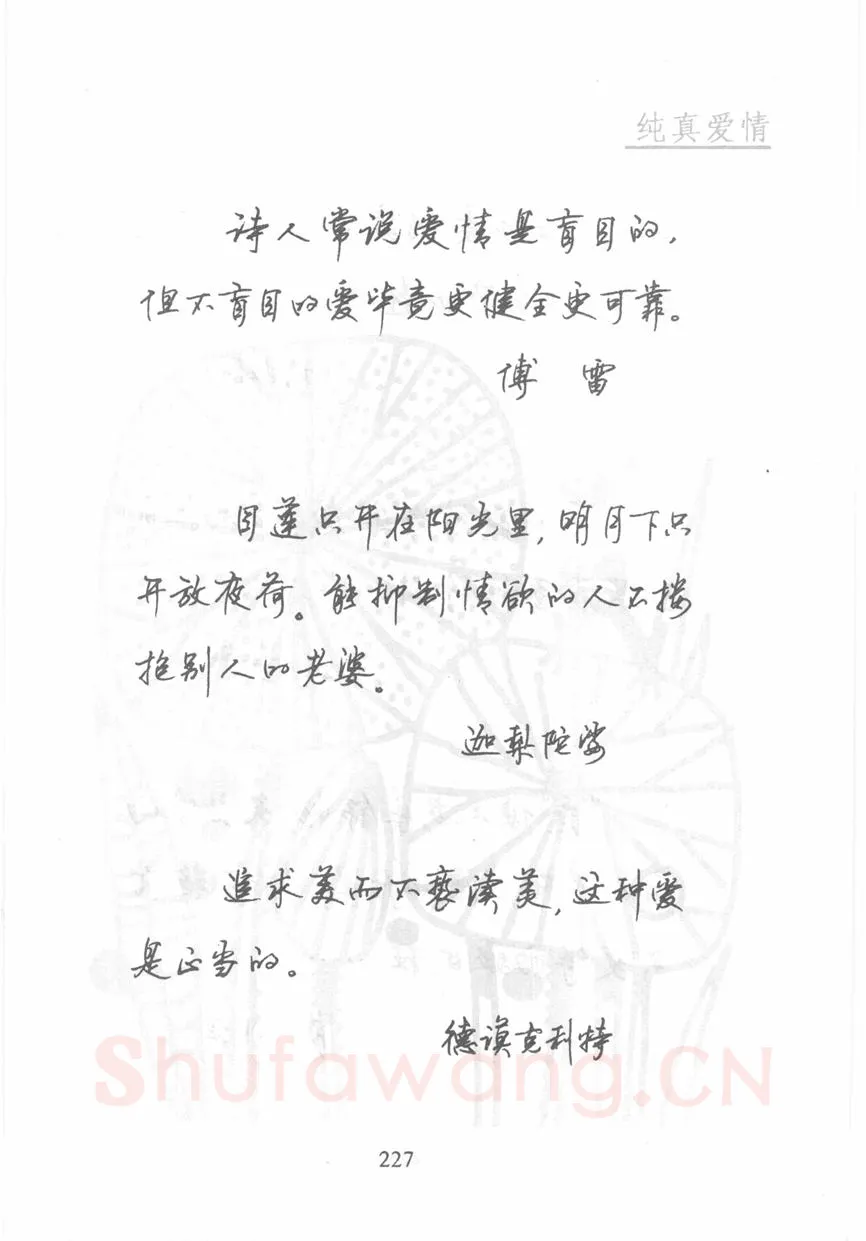 纯真爱情
诗人常说爱情是盲目的,
但不盲目的爱毕竟更健全更可靠。
傅 雷
日莲只开在阳光里,明月下只
开放夜荷。能抑制情欲的人不搂
抱别人的老婆。
迦梨陀娑
追求美而不亵渎美,这种爱
是正当的。
德谟克利特
Shufawang.CN
227